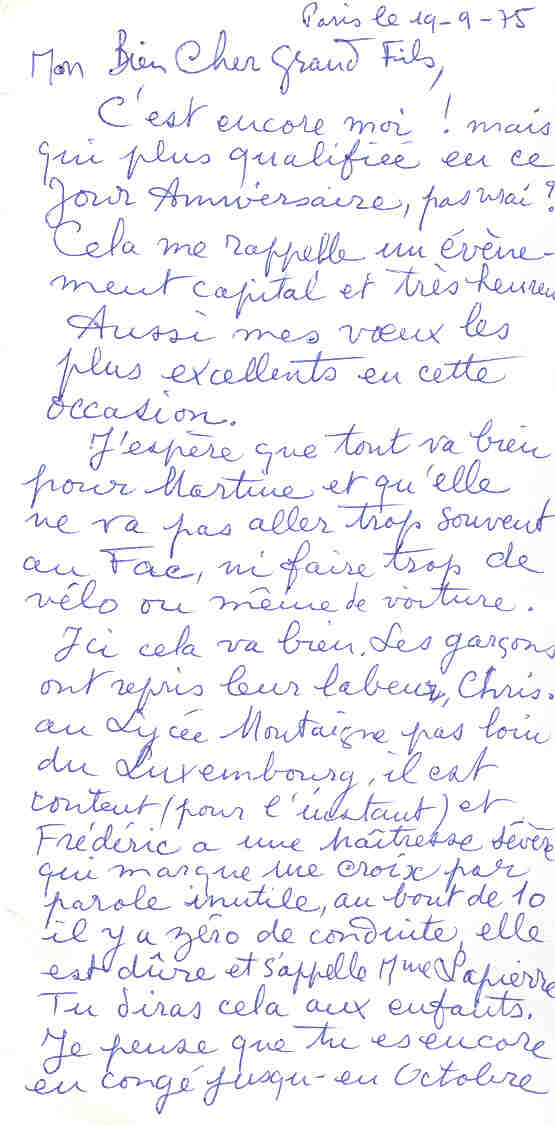 Paris le 19-9-75
Mon Bien Cher Grand Fils,
C'est encore moi ! mais
qui plus qualifiée en ce
Jour Anniversaire, pas vrai ?
Cela me rappelle un évène-
ment capital et très heureu
Aussi mes vœux les
plus excellents en cette
occasion.
J'espère que tout va bien
pour Martine et qu'elle
ne va pas aller trop souvent
au Fac, ni faire trop de
vélo ou même de voiture.
Ici cela va bien. Les garçons
ont repris leur labeur, Chris.
au Lycée Montaigne pas loin
du Luxembourg, il est
content (pour l'instant) et
Frédéric a une maîtresse sévère
qui marque une croix par
parole inutile, au bout de 10
il y a zéro de conduite, elle
est dûre et s'appelle Mme Lapierre
Tu diras cela aux enfants.
Je pense que tu es encore
en congé jusqu-en Octobre